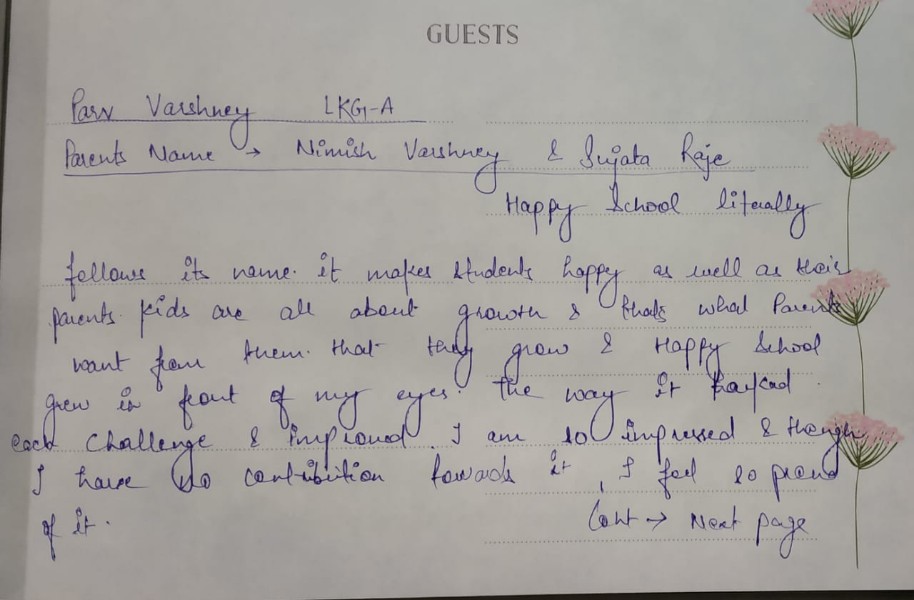 GUESTS
Parv Varshney LKG-A
Parents Name → Nimish Varshney & Sujata Raje
Happy School literally
follows its name. it makes students happy as well as their
parents. kids are all about growth & thats what Parents
want from them. that they grow & Happy School
grew in front of my eyes. the way it
each challenge & improved. I am so impressed & though
I have no contribution towards it, I feel so proud
of it.
Cont → Next page